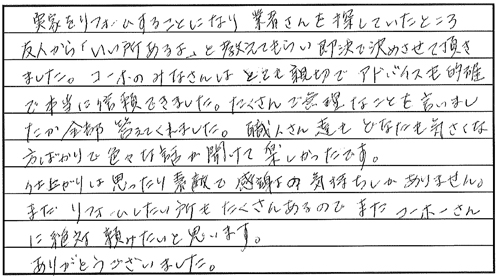 実家をリフォームすることになり業者さんを探していたところ
友人から「いい所あるよ」と教えてもらい即決で決めさせて頂き
ました。コーホーのみなさんはとても親切でアドバイスも的確
で本当に信頼できました。たくさんで無理なことも言いまし
たが全部答えてくれました。職人さん達もどなたも気さくな
方ばかりで色々な話が聞けて楽しかったです。
仕上がりは思ったより素敵で感謝の気持ちしかありません。
まだリフォームしたい所もたくさんあるのでまたコーホーさん
に絶対頼みたいと思います。
ありがとうございました。